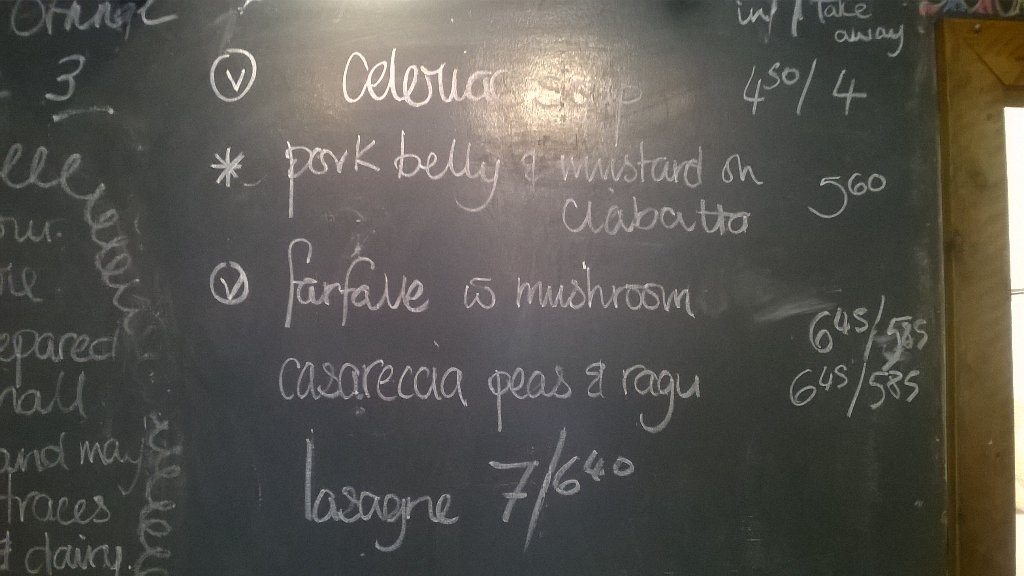 Orange
3
our.
epared
and may
traces
& dairy.
in/ Take
away
V Celeriac soup 4 50/ 4
* pork belly & mustard on
ciabatta 5 60
V farfalle w mushroom
6 45/5 85
casareccia peas & ragu 6 45/5 85
lasagne 7/6 40